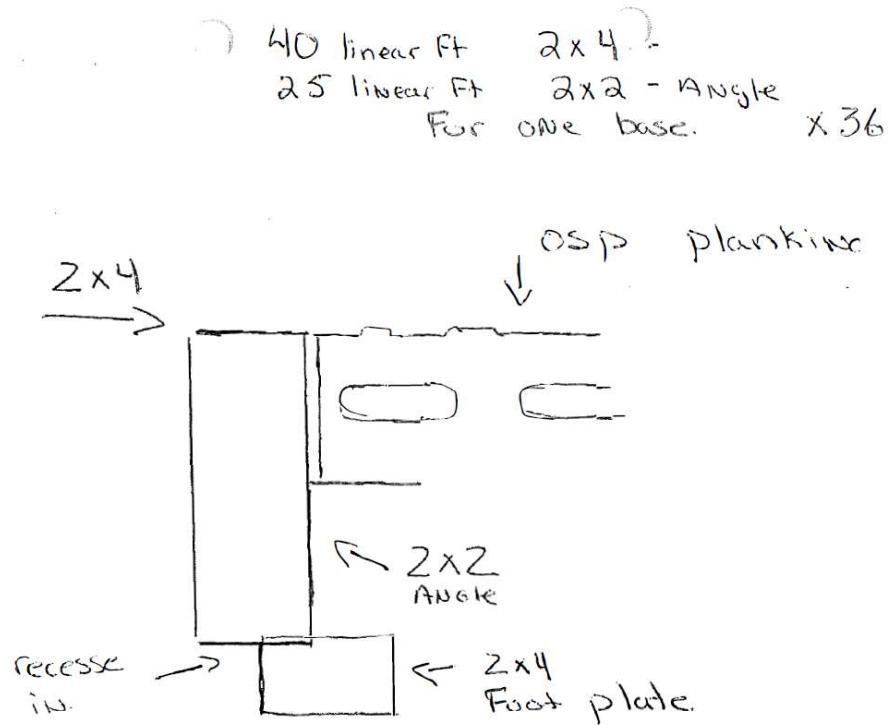 40 linear Ft 2x4 -
25 linear Ft 2x2 - Angle
For one base. x36
osp planking
2x4
2x2
Angle
recesse
in.
2x4
Foot plate.